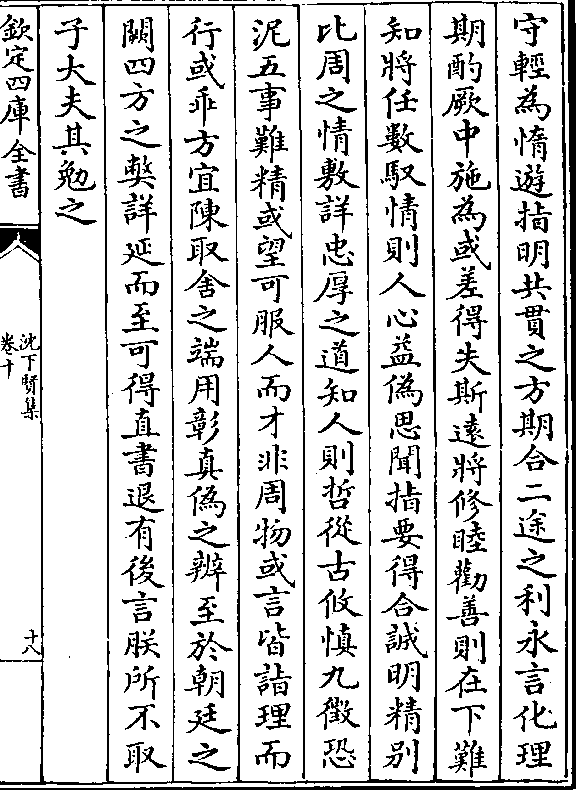 守輕為惰遊指明共貫之方期合二途之利永言化理
期酌厥中施為或差得失斯遠將修睦勸善則在下難
知將任數馭情則人心益偽思聞指要得合誠明精别
比周之情敷詳忠厚之道知人則哲從古攸慎九徵恐
泥五事難精或望可服人而才非周物或言皆詣理而
行或乖方宜陳取舍之端用彰真偽之辨至於朝廷之
闕四方之弊詳延而至可得直書退有後言朕所不取
子大夫其勉之
欽定四庫全書
沈下賢集
卷十
十八